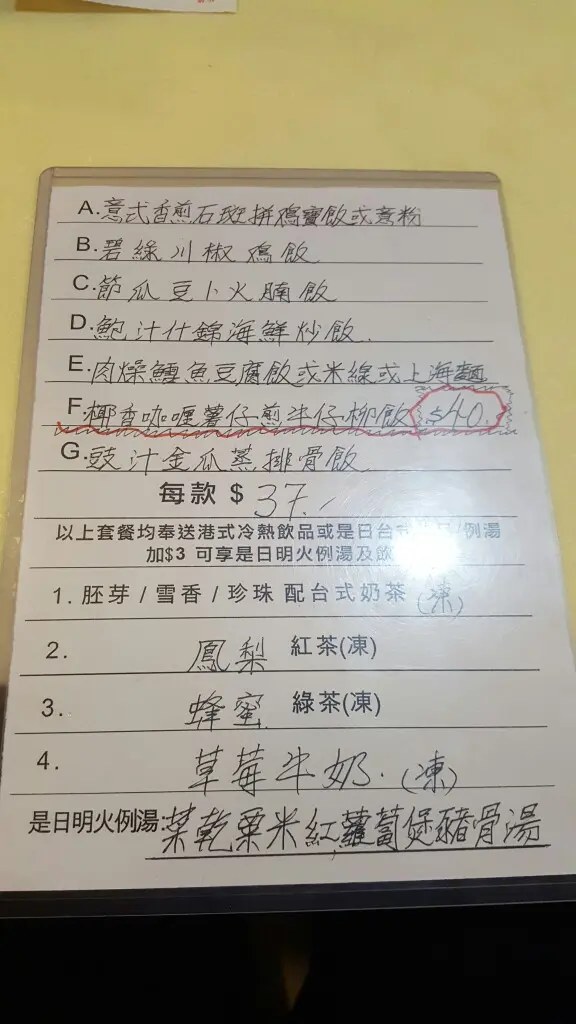 A.意式香煎石斑拼鸡寶飯或意粉
B.碧綠川椒鸡飯
C.節瓜豆卜火腩飯
D.鮑汁什錦海鮮炒飯.
E.肉燥鱈魚豆腐飯或米線或上海麵
F.椰香咖喱薯仔煎牛仔柳飯 $40.
G.豉汁金瓜蒸排骨飯.
每款 $ 37.-
以上套餐均奉送港式冷熱飲品或是日台式 例湯
加$3 可享是日明火例湯及飲
1. 胚芽 / 雪香 / 珍珠 配台式奶茶 (凍)
2. 鳳梨 紅茶(凍)
3. 蜂蜜 綠茶(凍)
4. 草莓牛奶. (凍)
是日明火例湯:菜乾粟米紅蘿蔔煲豬骨湯